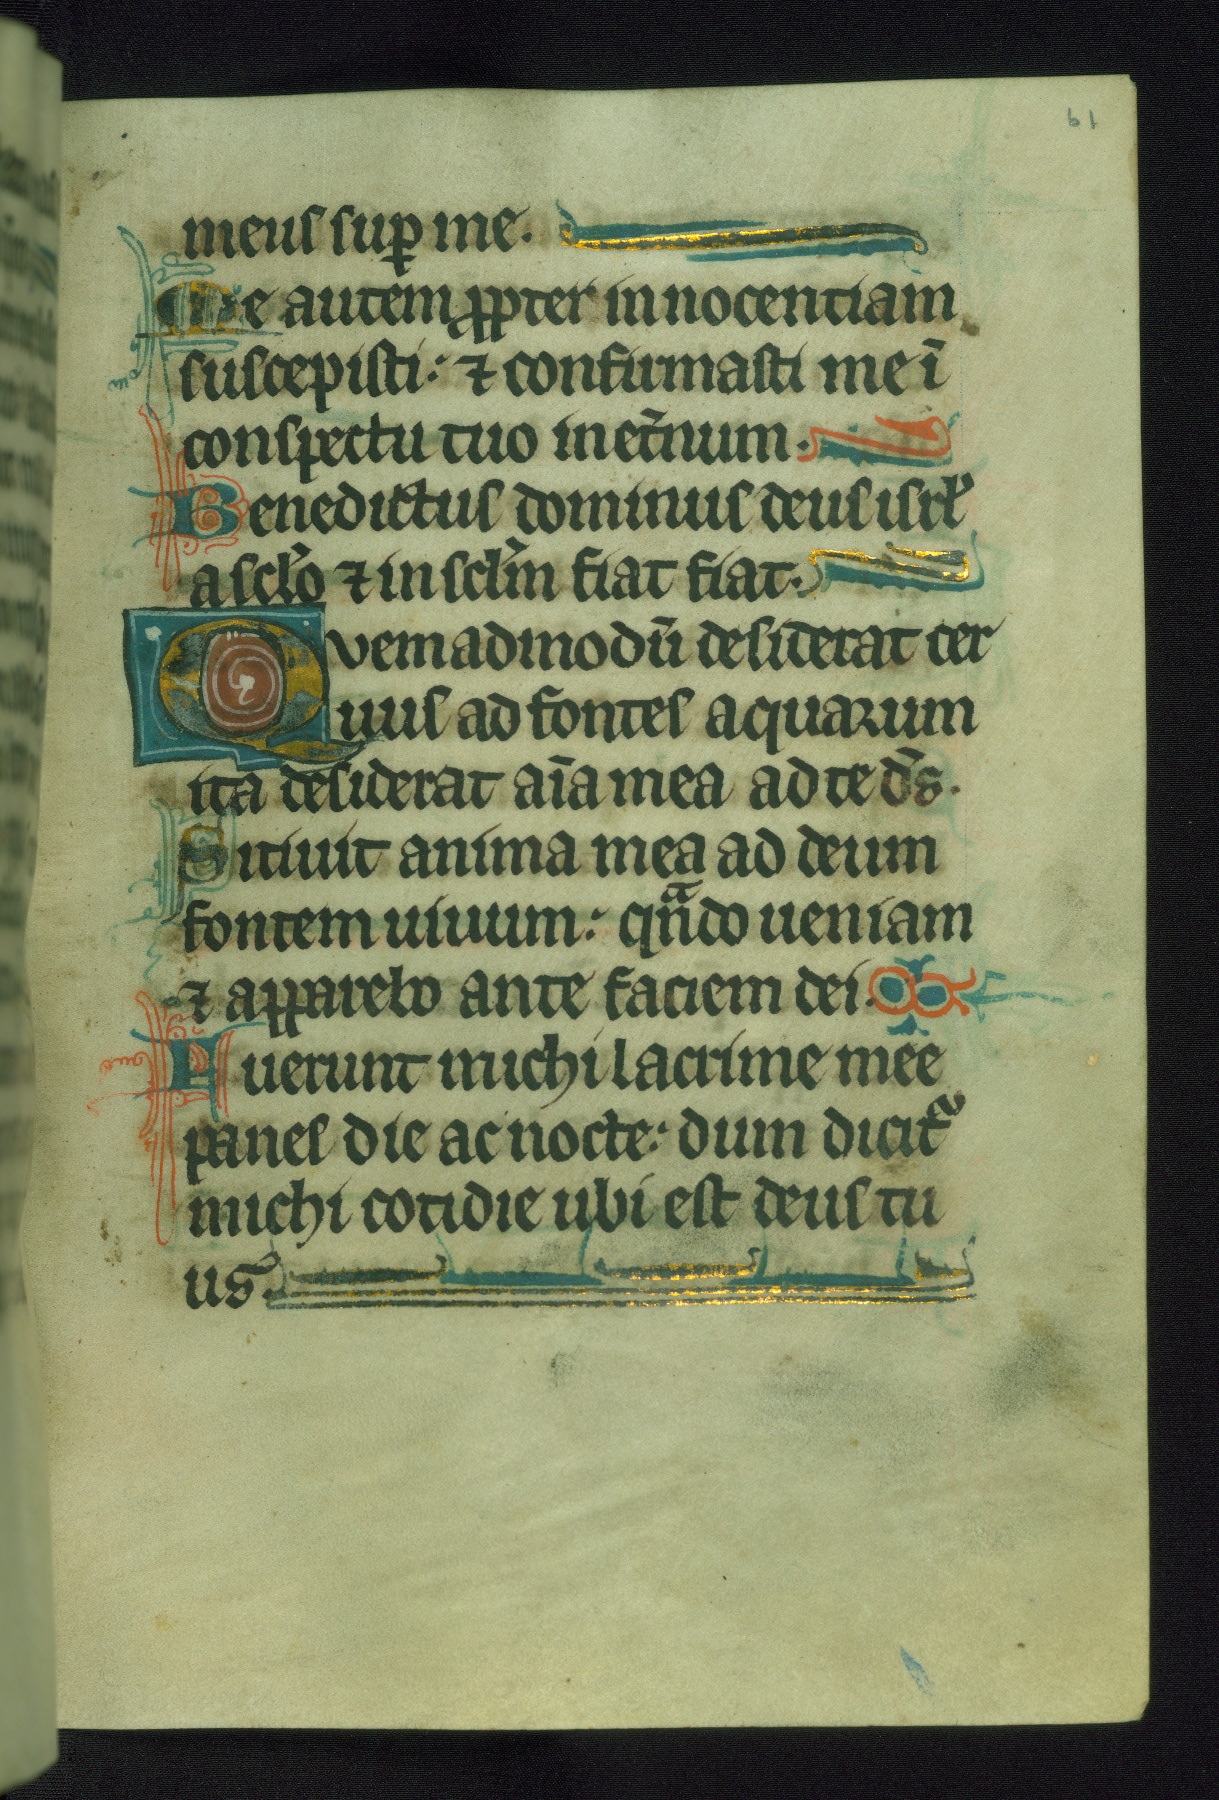 61
meus sup me.
Me autem ppter innocentiam
suscepisti: ⁊ confirmasti me ī
conspectu tuo in et̄num.
Benedictus dominus deus isrl̾
a scl̾o ⁊ in scl̾m fiat fiat.
Quemadmodū desiderat cer
uus ad fontes aquarum
ita desiderat aīa mea ad te d̄s.
Sitiuit anima mea ad deum
fontem uiuum: qn̄do ueniam
⁊ apparebo ante faciem dei.
Fuerunt michi lacrime mee
panes die ac nocte: dum dicit᷑
michi cotidie ubi est deus tu
us.